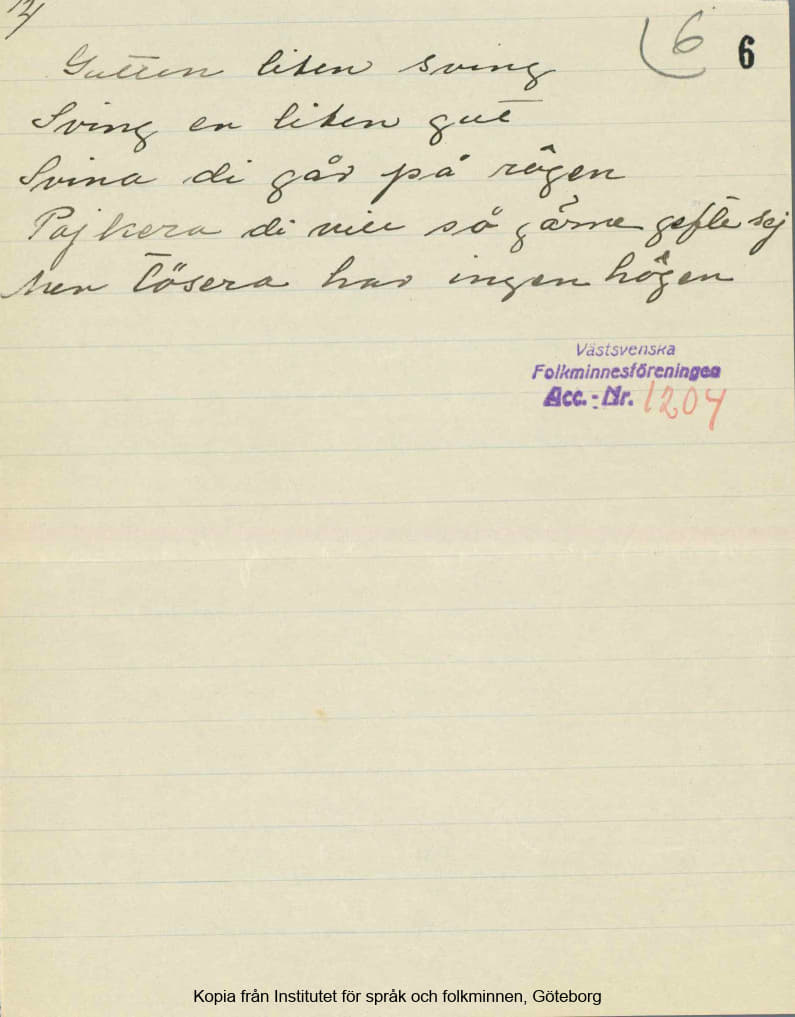 6 6
Gutten liten sving
Sving en liten gut
Svina di går på rôgen
Pojkera di vill så gärne gefte sej
Men tösera har ingen hôgen
Västsvenska
Folkminnesföreningen
Acc.-Nr. 1204
Kopia från Institutet för språk och folkminnen, Göteborg